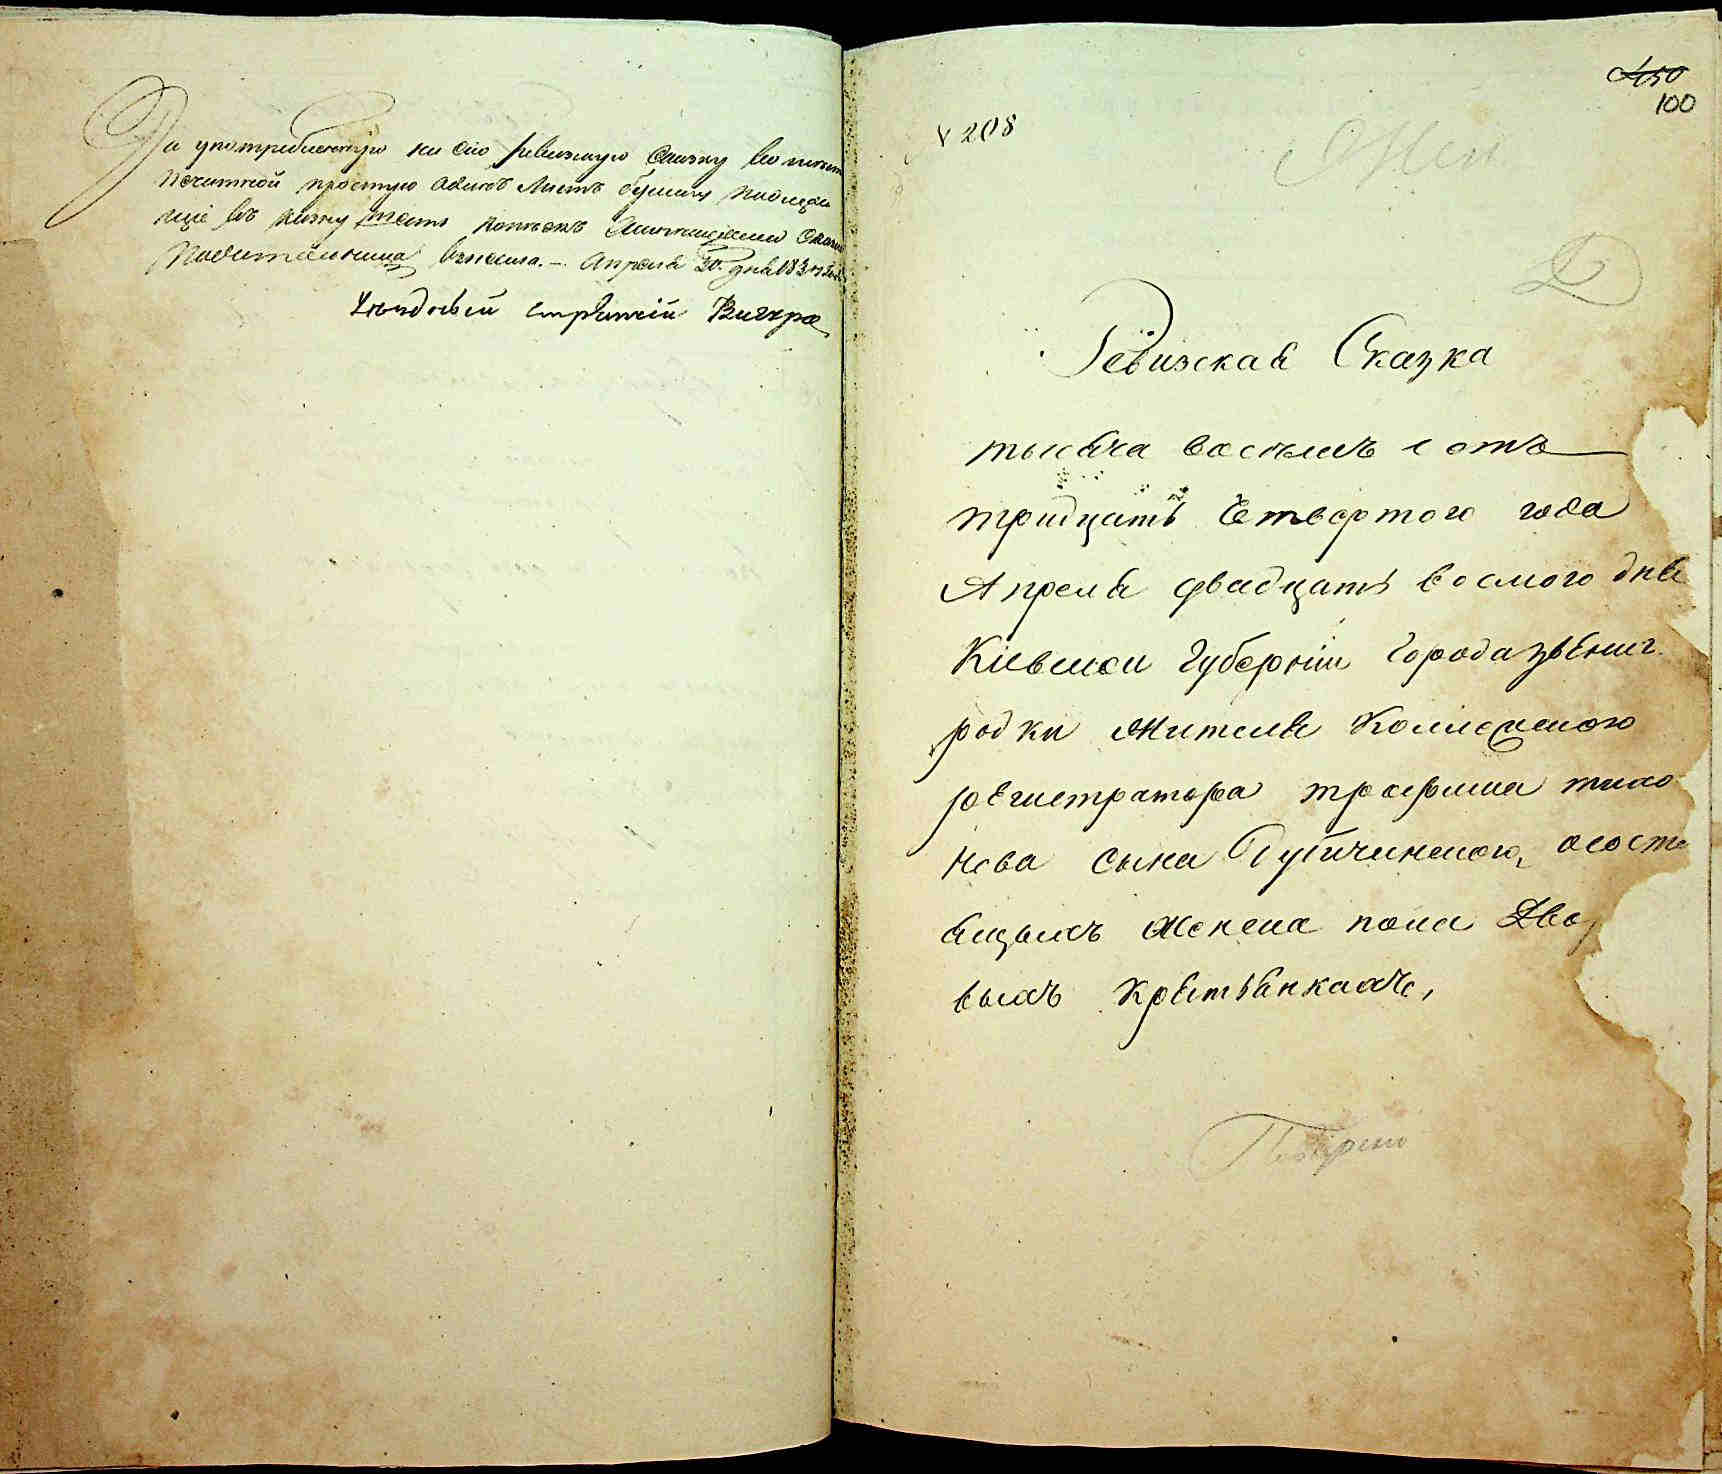 За употребленную на сию ревизскую скаску вместо
печатной простую одинъ листъ бумаги подлежа
щіе въ казну шесть копѣекъ
подательница взнесла. — Апреля 30. дня 1834 года
Уездный стряпчій
450
100
№ 208
Жен
Ревизская Сказка
тысяча восемь сотъ
тридцать Четвертого года
Апреля двадцать восмого дня
Кіевской Губерніи Города звениг
родки Жителя Коллежского
регистратора трофима тихо
нова сына ососто
ящыхъ женска пола Дво
выхъ Крестьянкахъ,
Поверено